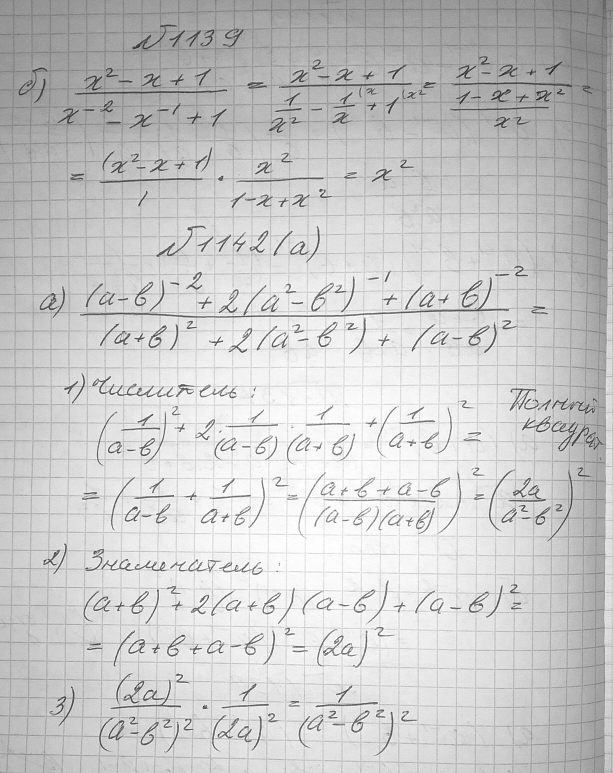 №1139
б) (x² - x + 1)/(x⁻² - x⁻¹ + 1) = (x² - x + 1)/(1/x² - 1/x ⁽ˣ + 1 ⁽ˣ²) = (x² - x + 1)/((1 - x + x²)/x²) =
= (x² - x + 1)/1 · x²/(1 - x + x²) = x²
№1142(а)
а) ((a-b)⁻² + 2(a² - b²)⁻¹ + (a+b)⁻²)/((a+b)² + 2(a² - b²) + (a-b)²) =
1) Числитель:
(1/(a-b))² + 2 · 1/(a-b) · 1/(a+b) + (1/(a+b))² = Полный квадрат
= (1/(a-b) + 1/(a+b))² = ((a+b+a-b)/((a-b)(a+b)))² = (2a/(a²-b²))²
2) Знаменатель:
(a+b)² + 2(a+b)(a-b) + (a-b)² =
= (a+b+a-b)² = (2a)²
3) (2a)²/(a²-b²)² · 1/(2a)² = 1/(a²-b²)²